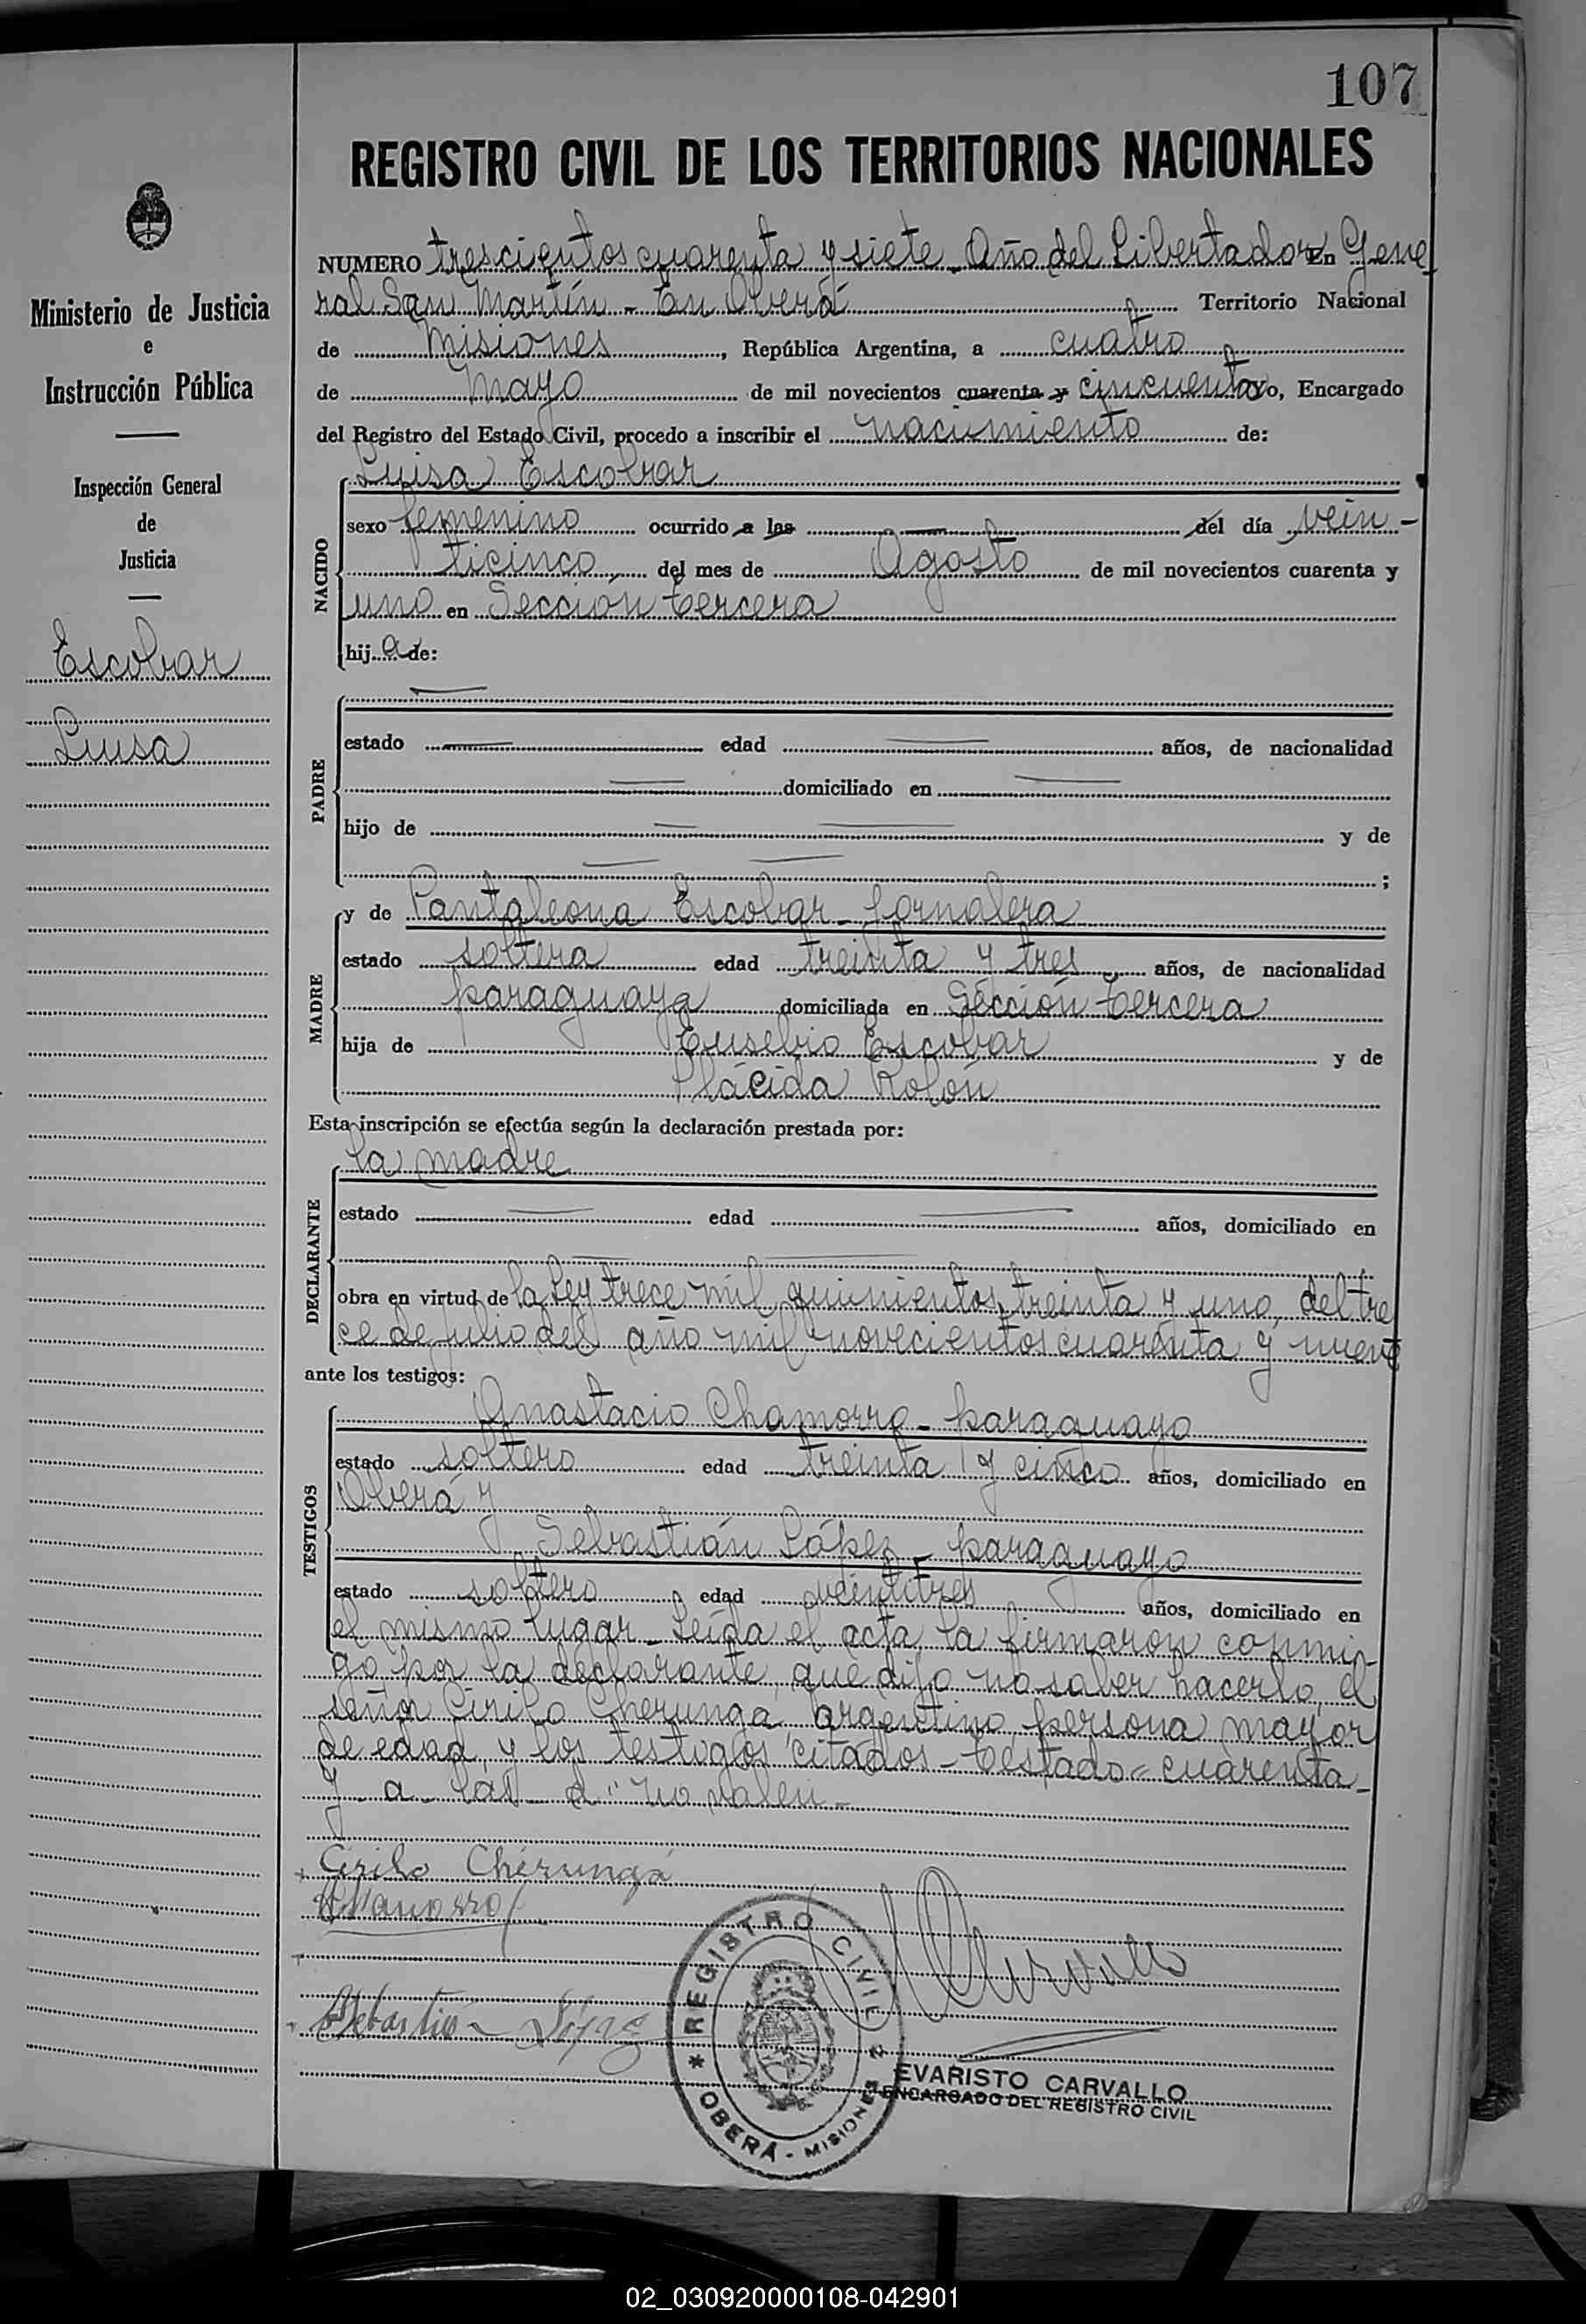 107
REGISTRO CIVIL DE LOS TERRITORIOS NACIONALES
Ministerio de Justicia
e
Instrucción Pública
Inspección General
de
Justicia
Escobar
Luisa
NUMERO trescientos cuarenta y siete - Año del Libertador En Gene
ral San Martín - En Oberá Territorio Nacional
de Misiones, República Argentina, a cuatro
de Mayo de mil novecientos cuarenta y cincuenta yo, Encargado
del Registro del Estado Civil, procedo a inscribir el nacimiento de:
NACIDO
Luisa Escobar
sexo femenino ocurrido a las — del día vein-
ticinco, del mes de Agosto de mil novecientos cuarenta y
uno en Sección tercera
hij a de:
PADRE
—
estado — edad — años, de nacionalidad
— domiciliado en —
hijo de — — y de
— — ;
MADRE
y de Pantaleona Escobar - jornalera
estado soltera edad treinta y tres años, de nacionalidad
paraguaya domiciliada en Sección tercera
hija de Eusebio Escobar y de
Plácida Rolón
Esta inscripción se efectúa según la declaración prestada por:
DECLARANTE
la madre
estado — edad — años, domiciliado en
— —
obra en virtud de la Ley trece mil quinientos treinta y uno, del tre
ce de julio del año mil novecientos cuarenta y nueve
ante los testigos:
TESTIGOS
Anastacio Chamorro - paraguayo
estado soltero edad treinta y cinco años, domiciliado en
Oberá y
Sebastián López - paraguayo
estado soltero edad veintitres años, domiciliado en
el mismo lugar - Leída el acta, la firmaron conmi-
go por la declarante, que dijo no saber hacerlo, el
señor Cirilo Cherunga, argentino, persona mayor
de edad, y los testigos citados - Testado = cuarenta -
y - a - las - d " no valen -
Cirilo Cherunga
Sebastián López
REGISTRO CIVIL
OBERÁ - MISIONES
EVARISTO CARVALLO
ENCARGADO DEL REGISTRO CIVIL
02_030920000108-042901